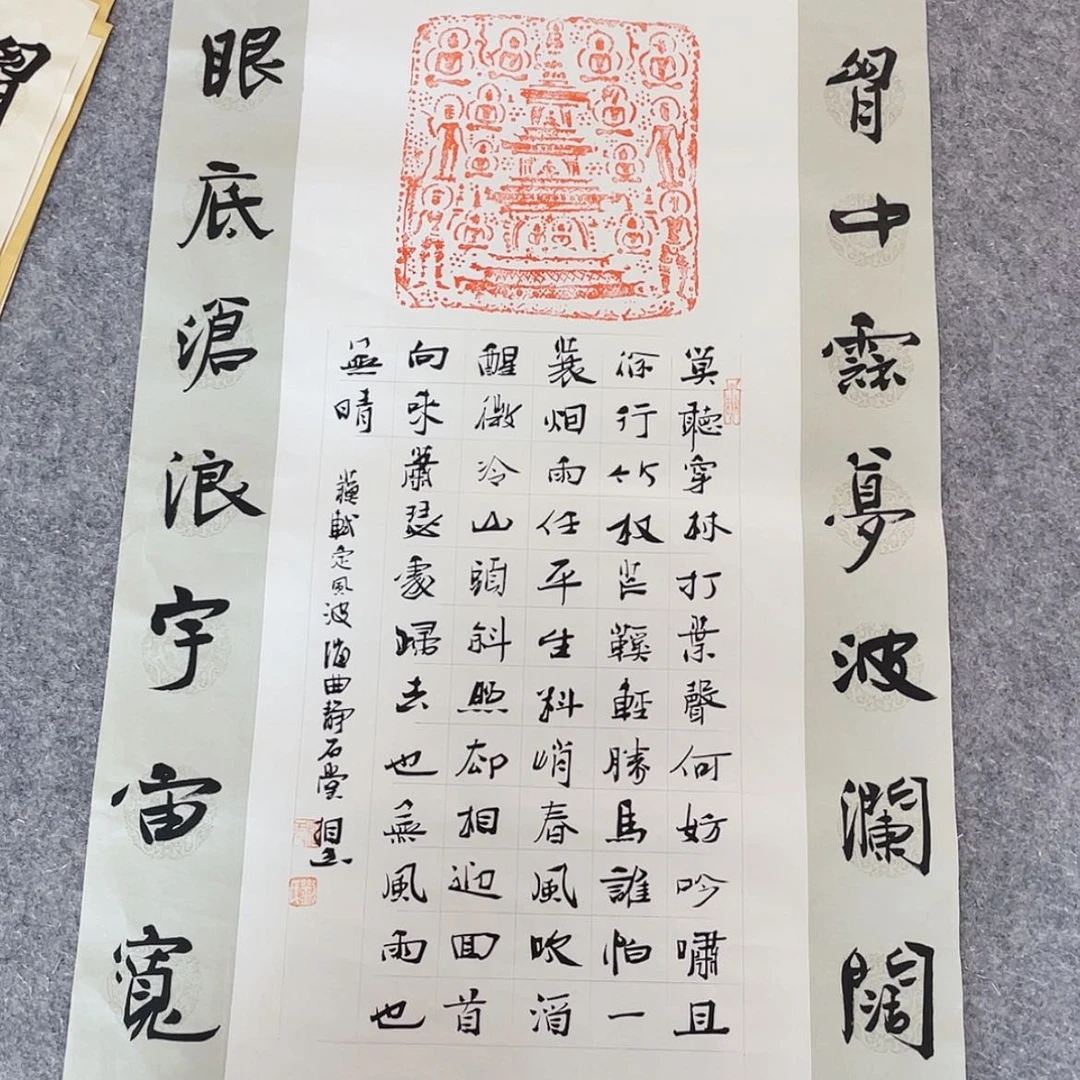 胷中雲夢波瀾闊
莫聽穿林打葉聲何妨吟嘯且
徐行竹杖芒鞵輕勝馬誰怕一
蓑烟雨任平生料峭春風吹酒
醒微冷山頭斜照却相迎回首
向來蕭瑟處歸去也無風雨也
無晴
蘇軾定風波 海曲靜石堂
眼底滄浪宇宙寬